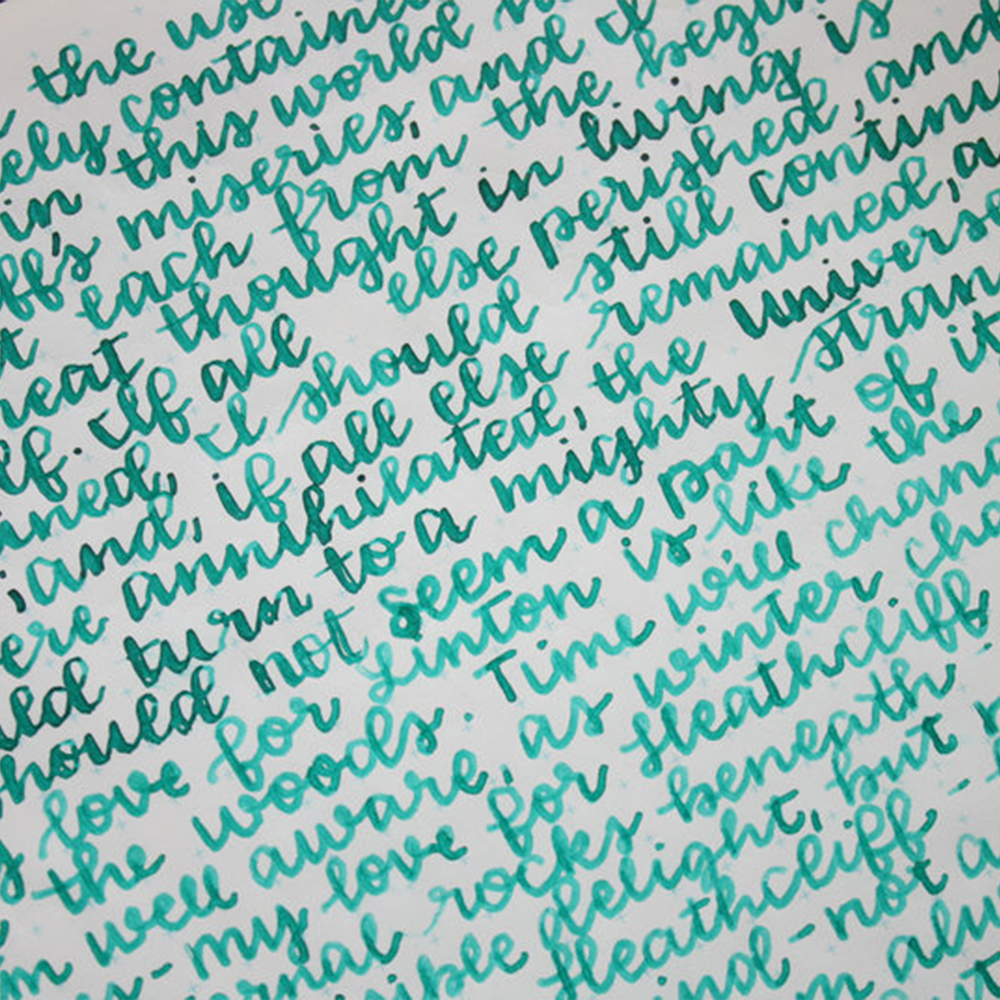 the use
ely contained
in this world
ff's miseries, and I
t each from the begin
heat thought in living is
lf. If all else perished, and
ined, I should still continu
; and, if all else remained, a
ere annihilated, the Universe
ld turn to a mighty stran
hould not seem a part of it
s love for Linton is like the
the woods. Time will chang
m well aware, as winter cha
s - my love for Heathcliff
rnal rocks beneath
ible delight, but n
Heathcliff -
nd - not a
m alw